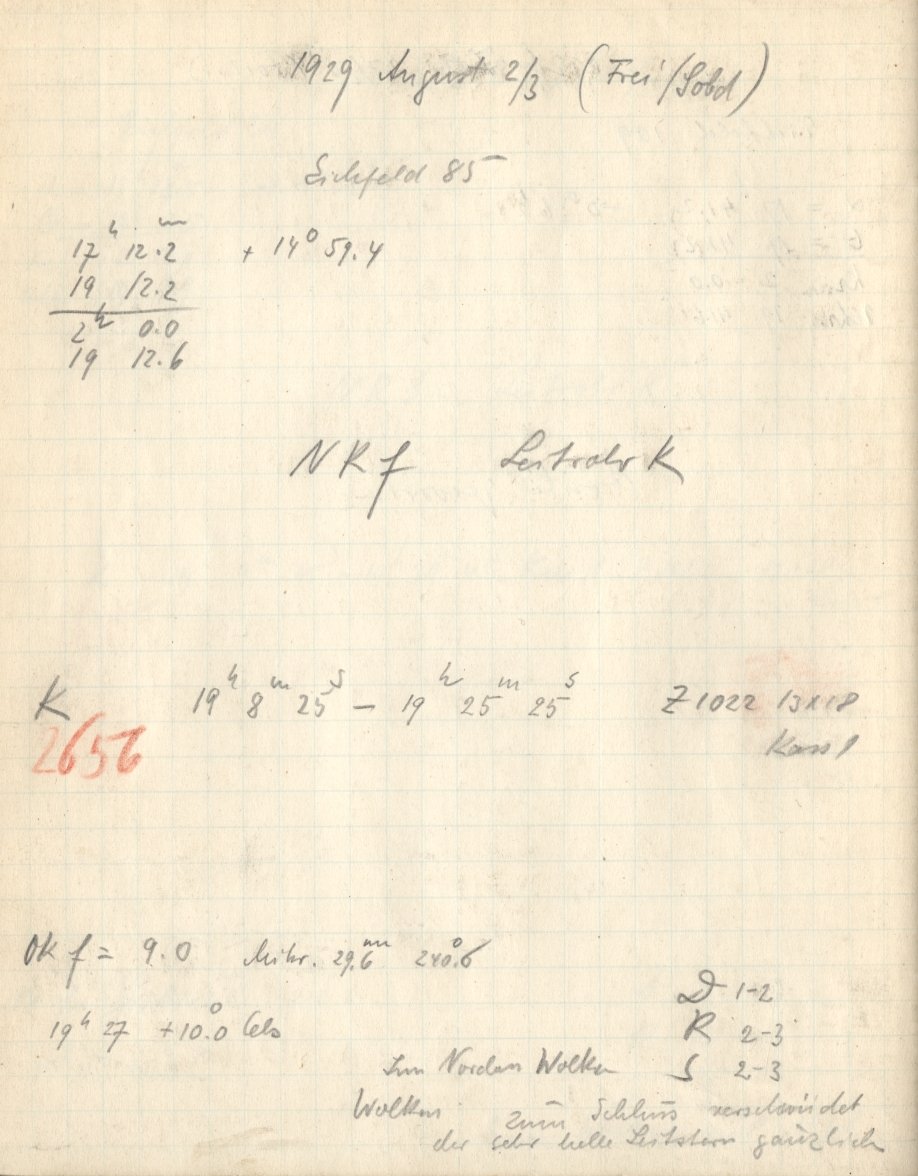 1929 August 2/3 (Frei/Sobd)
Eichfeld 85
17h 12.2m + 14° 59.4
19 12.2
2h 0.0
19 12.6
NKf Leitrohr K
K 19h 8m 25s – 19h 25m 25s Z 1022 13x18
2656 Kass 1
OK f = 9.0 Mikr. 29.6mm 240.°6
D 1-2
19h 27 +10.°0 Cels R 2-3
Im Norden Wolken S 2-3
Wolken zum Schluss verschwindet
der sehr helle Leitstern gänzlich